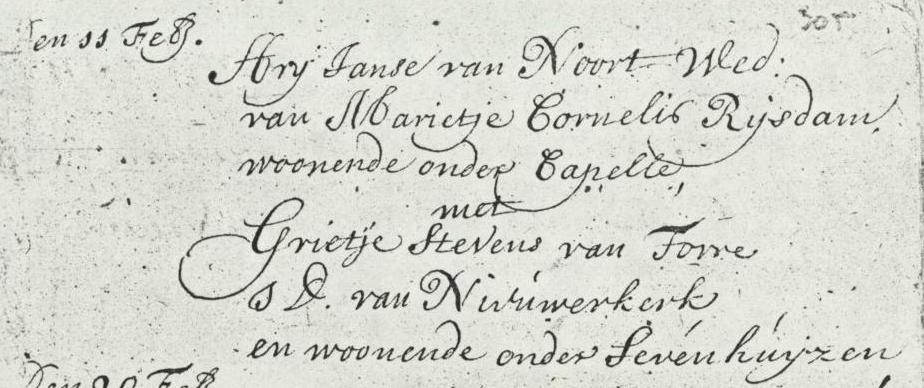 305
en 11 Feb.
Ary Janse van Noort Wed:
van Marietje Cornelis Rysdam,
woonende onder Capelle,
met
Grietje Stevens van Torre
J D. van Nieúwerkerk
en woonende onder Sevénhúyzen
Den 20 Feb